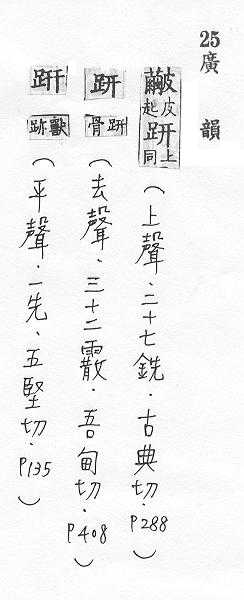 25廣韻
皮起趼上同(上聲．二十七銑．古典切．P288)
趼趼骨(去聲．三十二霰．吾甸切．P408)
趼獸跡(平聲．一先．五堅切．P135)